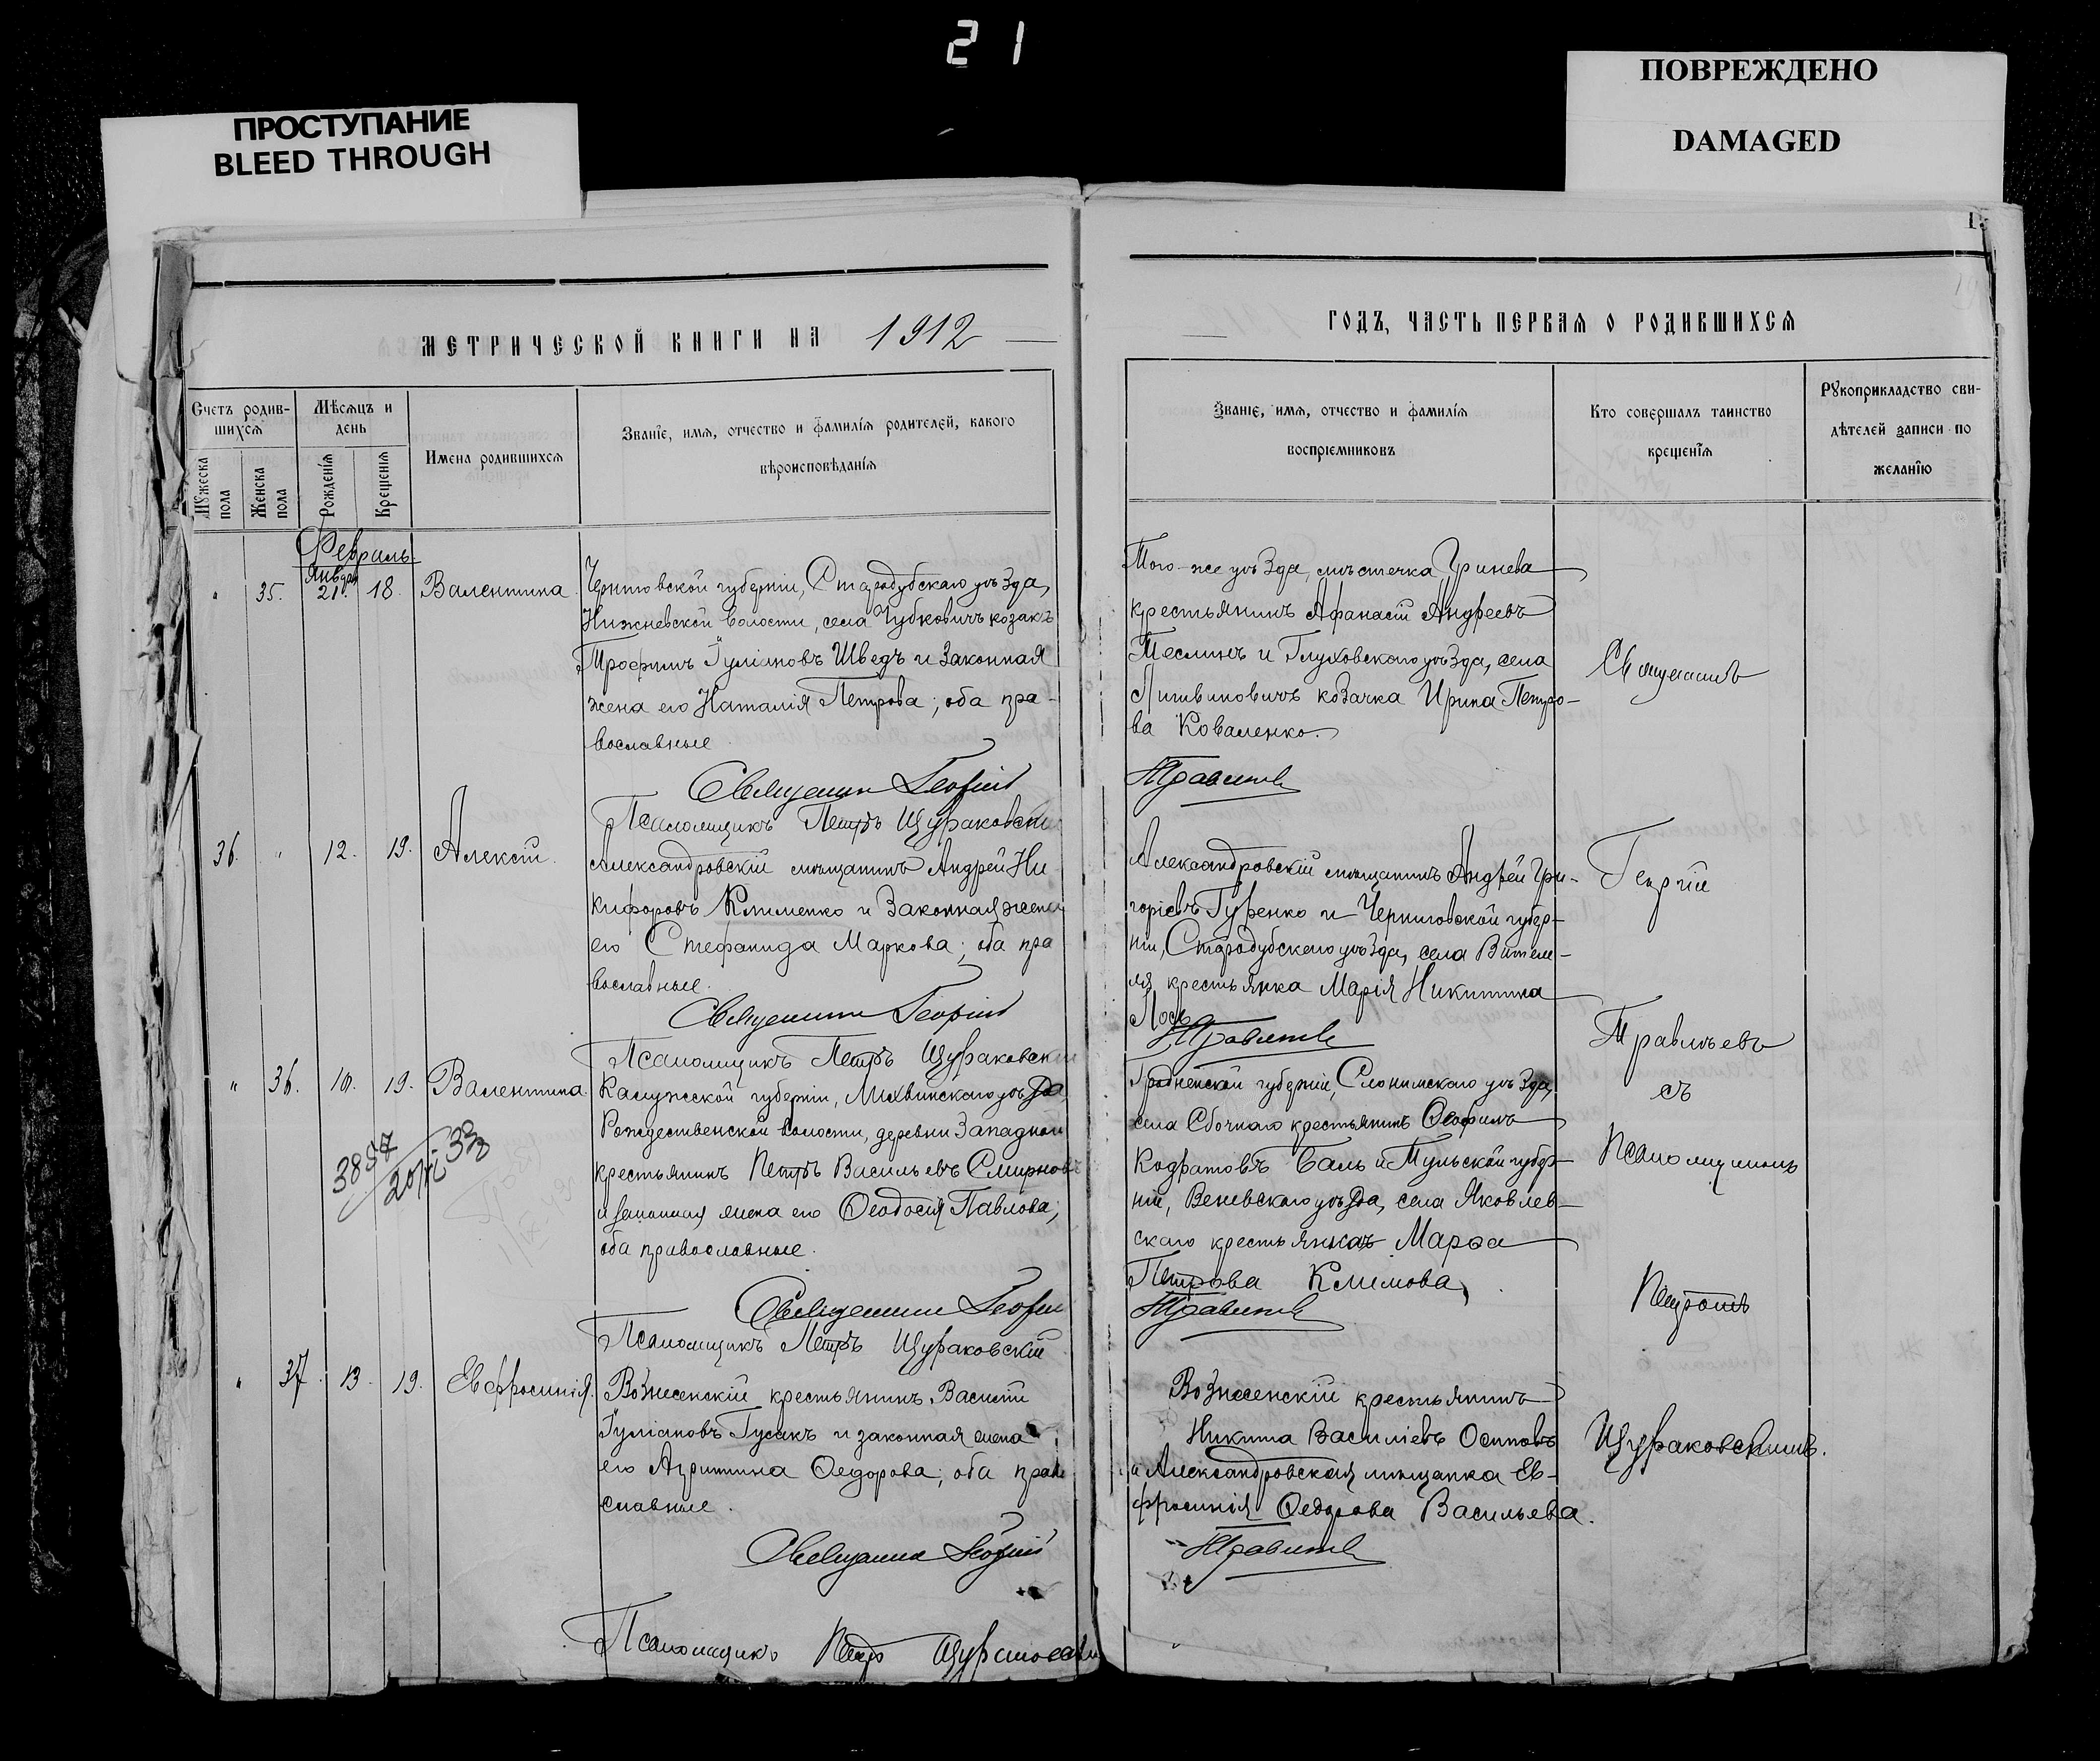 21
ПРОСТУПАНИЕ
BLEED THROUGH
ПОВРЕЖДЕНО
DAMAGED
МЕТРИЧЕСКОЙ КНИГИ НА 1912
Счетъ родив-
шихся
Мѣсяцъ и
день
Мужеска пола
Женска пола
Рожденія
Крещенія
Имена родившихся
Званіе, имя, отчество и фамилія родителей, какого
вѣроисповѣданія
Февраль
Января
35. 21. 18. Валентина
Черниговской губерніи, Стародубскаго уѣзда,
Нижневской волости, села Чубковичъ козакъ
Трофимъ Іуліановъ Шведъ и законная
жена его Наталія Петрова; оба пра-
вославные.
Священникъ Георгій
Псаломщикъ Петръ Щураковскій
36. " 12. 19. Алексій.
Александровскій мѣщанинъ Андрей Ни
кифоровъ Клименко и законная жена
его Стефанида Маркова; оба пра
вославные.
Священникъ Георгій
Псаломщикъ Петръ Щураковскій
" 36. 10. 19. Валентина.
Калужской губерніи, Лихвинскаго уѣзда
Рождественской волости, деревни Западной
крестьянинъ Петръ Васильевъ Смирновъ
и законная жена его Ѳеодосія Павлова;
оба православные.
3897
Священникъ Георгій
Псаломщикъ Петръ Щураковскій
" 37. 13. 19. Евфросинія.
Вознесенскій крестьянинъ Василій
Іуліановъ Гусакъ и законная жена
его Агриппина Ѳедорова; оба право
славные.
Священникъ Георгій
Псаломщикъ Петръ Щураковскій
ГОДЪ, ЧАСТЬ ПЕРВАЯ О РОДИВШИХСЯ
Званіе, имя, отчество и фамилія
воспріемниковъ
Кто совершалъ таинство
крещенія
Рукоприкладство сви-
дѣтелей записи по
желанію
Того-же уѣзда, мѣстечка Гринева
крестьянинъ Афанасій Андреевъ
Меслинъ и Глуховскаго уѣзда, села
Литвиновичъ козачка Ирина Петро-
ва Коваленко.
Травинъ
Александровскій мѣщанинъ Андрей Гри-
горіевъ Гуренко и Черниговской губер-
ніи, Стародубскаго уѣзда, села Вителм-
ля крестьянка Марія Никитина
Лось
Гродненской губерніи, Слонимскаго уѣзда,
села Сбочнаго крестьянинъ Ѳеофилъ
Кодратовъ Баль и Тульской губер-
ніи, Веневскаго уѣзда, села Яковлев-
скаго крестьянка Марѳа
Петрова Климова
Вознесенскій крестьянинъ
Никита Василіевъ Осиповъ
и Александровская мѣщанка Ев-
фросинія Ѳеодорова Васильева.
Священникъ
Георгій
съ
Псаломщикомъ
Петромъ
Щураковскимъ.